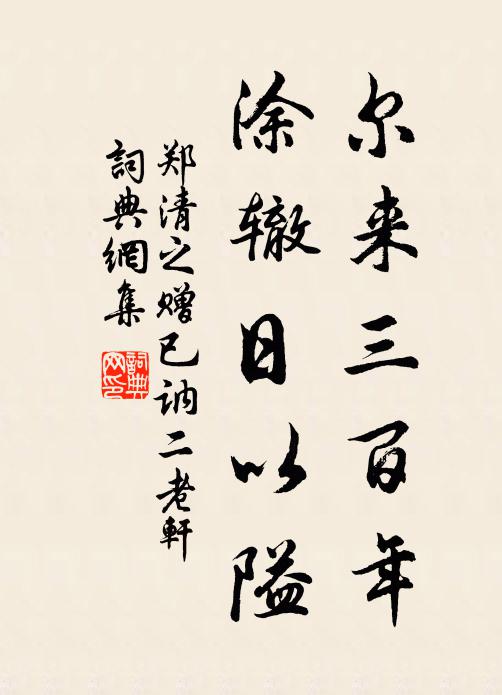 尔来三百年
涂辙日以隘
郑清之赠已讷二老轩
詞典網集
詞典网印